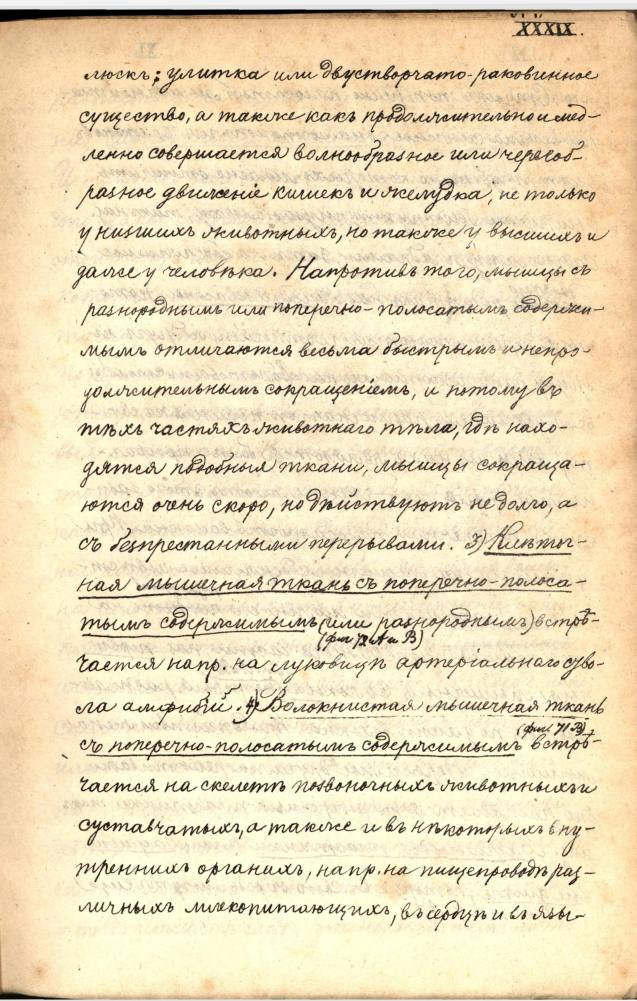 XXXIX.
люскъ; улитка или двустворчато-раковинное
существо, а также какъ продолжительно и мед-
ленно совершается волнообразное или червеоб-
разное движеніе кишекъ и желудка, не только
у низшихъ животныхъ, но также у высшихъ и
даже у человѣка. Напротивъ того, мышцы съ
разнороднымъ или поперечно-полосатымъ содержи-
мымъ отличаются весьма быстрымъ и непро-
должительнымъ сокращеніемъ, и потому въ
тѣхъ частяхъ животнаго тѣла, гдѣ нахо-
дятся подобныя ткани, мышцы сокраща-
ются очень скоро, но дѣйствуютъ не долго, а
съ безпрестанными перерывами. 3) Клѣточ-
ная мышечная ткань съ поперечно-полоса-
тымъ содержимымъ (или разнороднымъ) встрѣ-
(фиг. 72 А и В)
чается напр. на луковицѣ артеріальнаго ство-
ла амфибій. 4) Волокнистая мышечная ткань
(фиг. 71 В)
съ поперечно-полосатымъ содержимымъ встрѣ-
чается на скелетѣ позвоночныхъ животныхъ и
суставчатыхъ, а также и въ нѣкоторыхъ вну-
треннихъ органахъ, напр. на пищепроводѣ раз-
личныхъ млекопитающихъ, въ сердцѣ и въ язы-